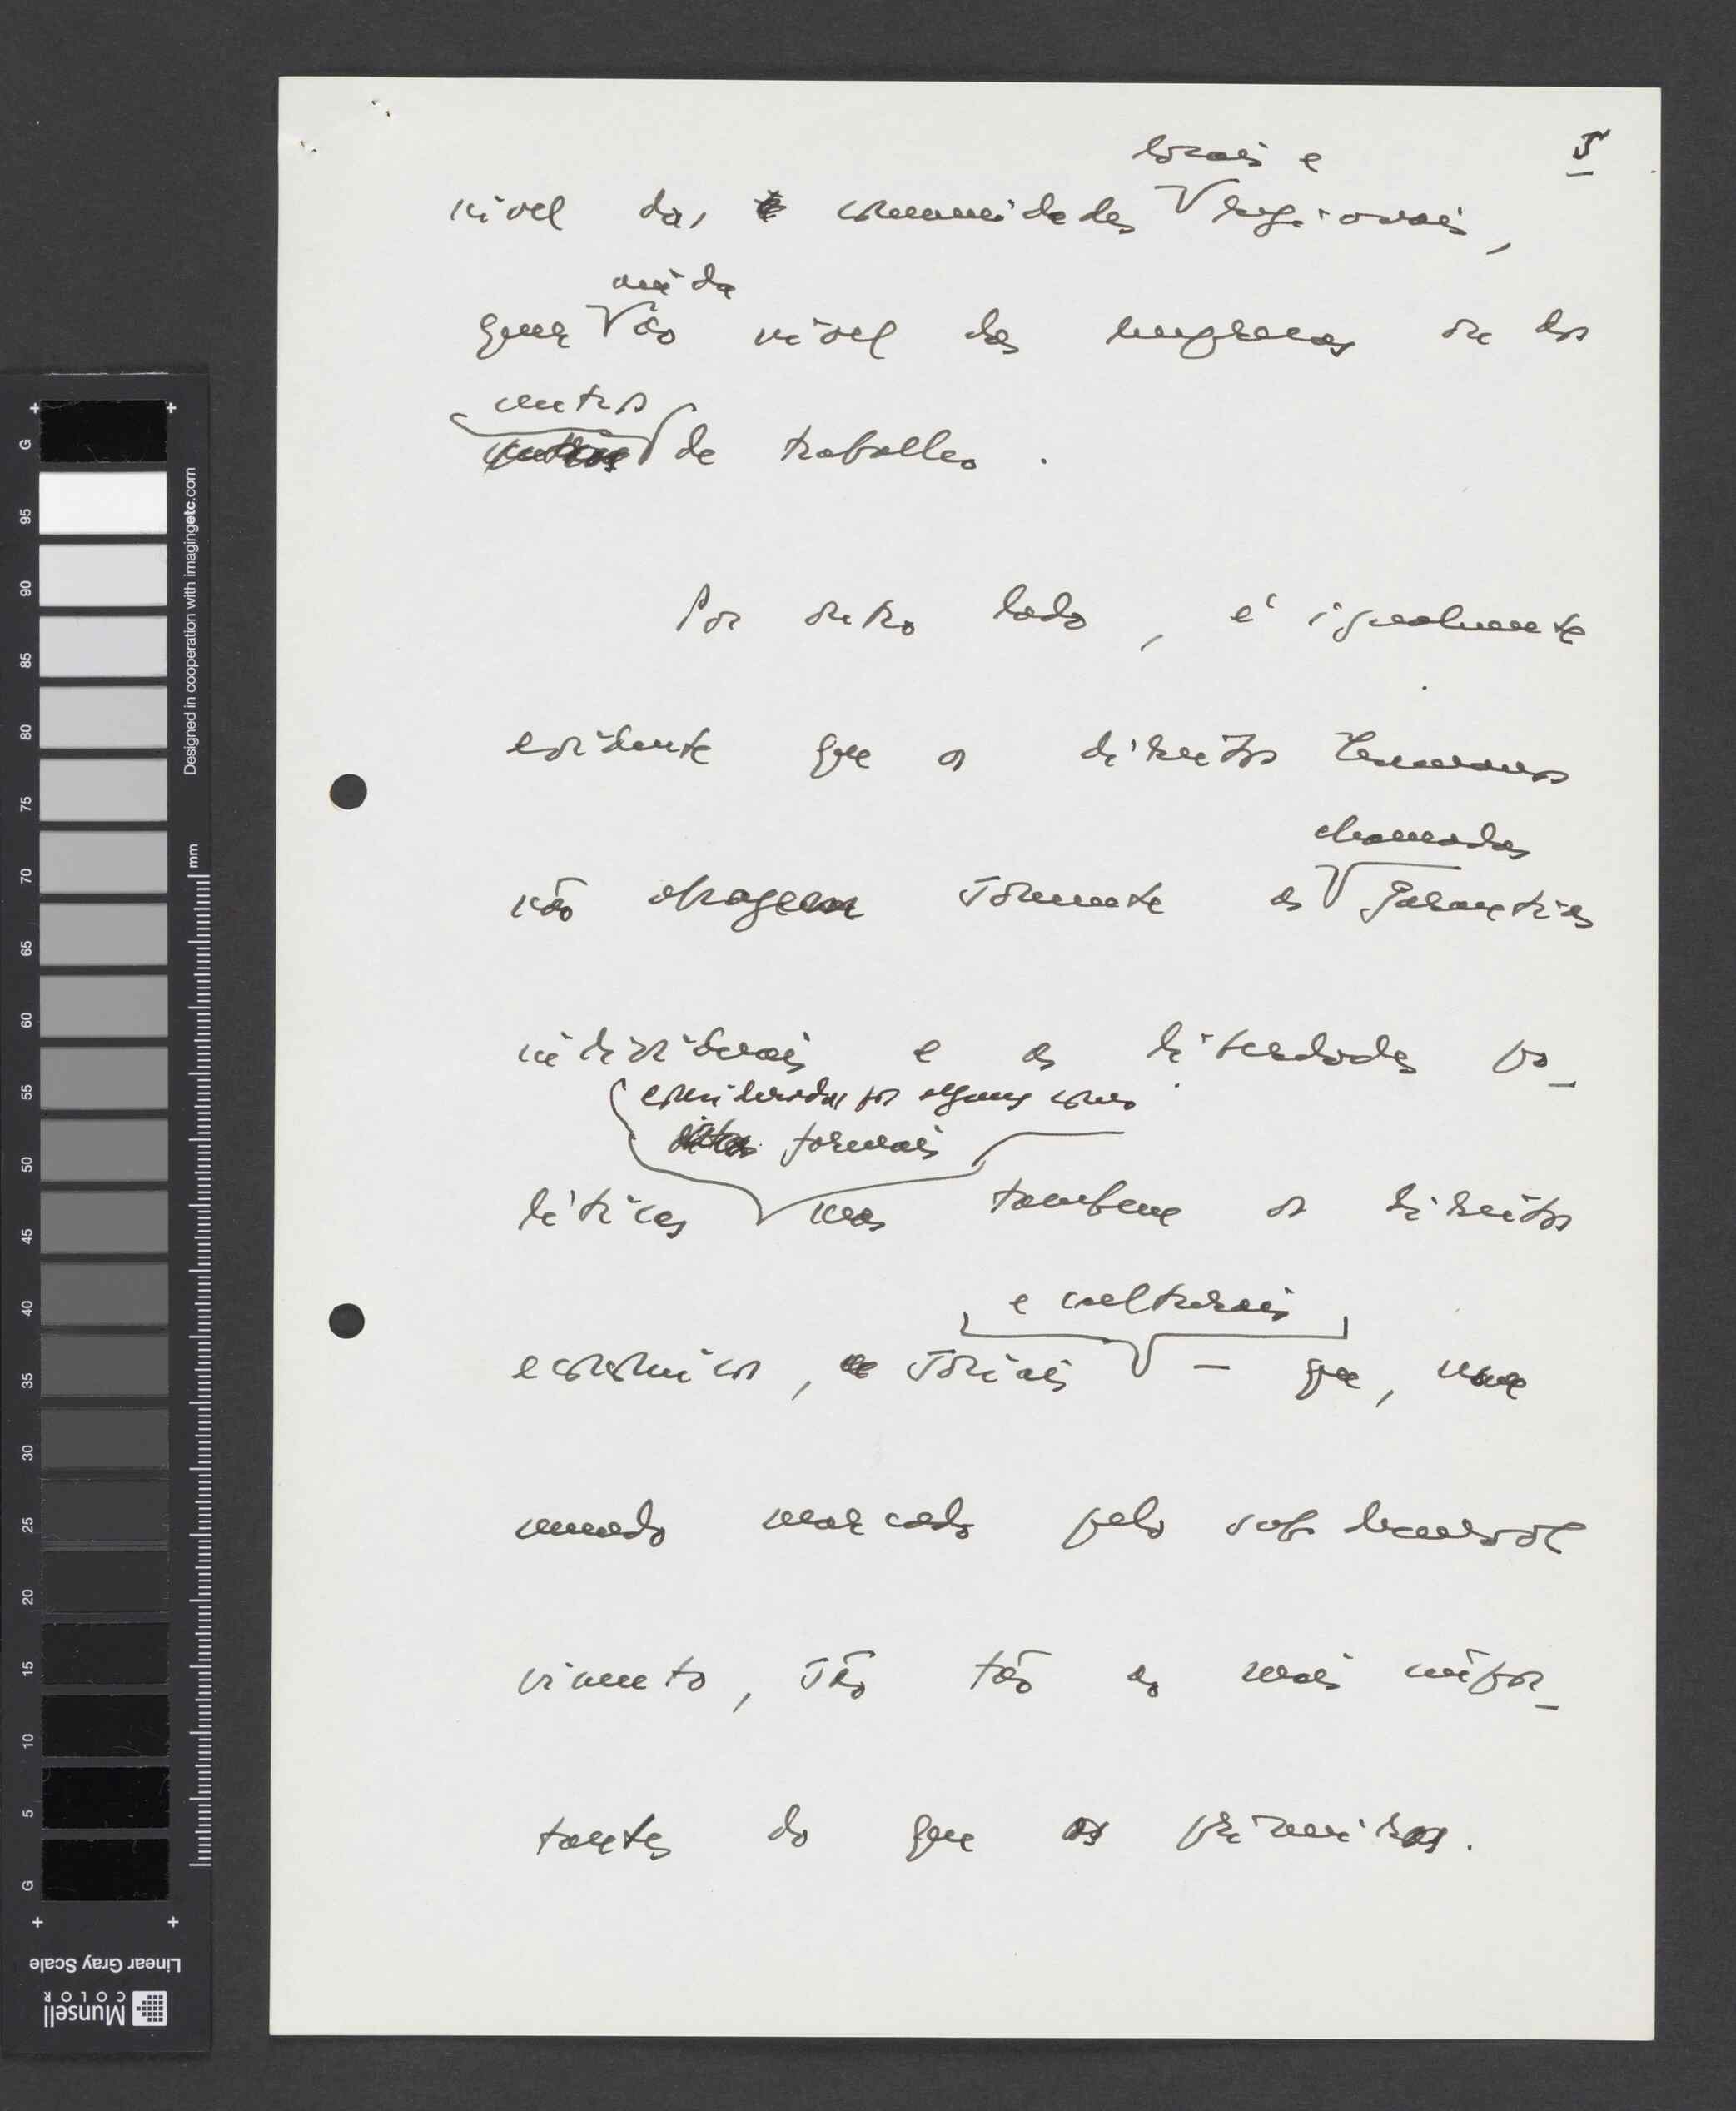 5
locais e
nivel das comunidades regionais,
ainda
quer ao nivel das empresas ou dos
centros
de trabalho.
Por outro lado, é igualmente
evidente que os direitos humanos
chamadas
não abragem somente as garantias
individuais e as liberdades po-
consideradas por alguns como
formais
liticas mas tambem os direitos
e culturais
economicos, sociais - que, num
mundo marcado pelo subdesenvol
vimento, são tão ou mais impor-
tantes do que os primeiros.
G
95
90
85
80
75
70
65
60
55
50
45
40
35
30
25
20
15
10
5
G
mm
Designed in cooperation with imagingetc.com
Linear Gray Scale
Munsell
COLOR